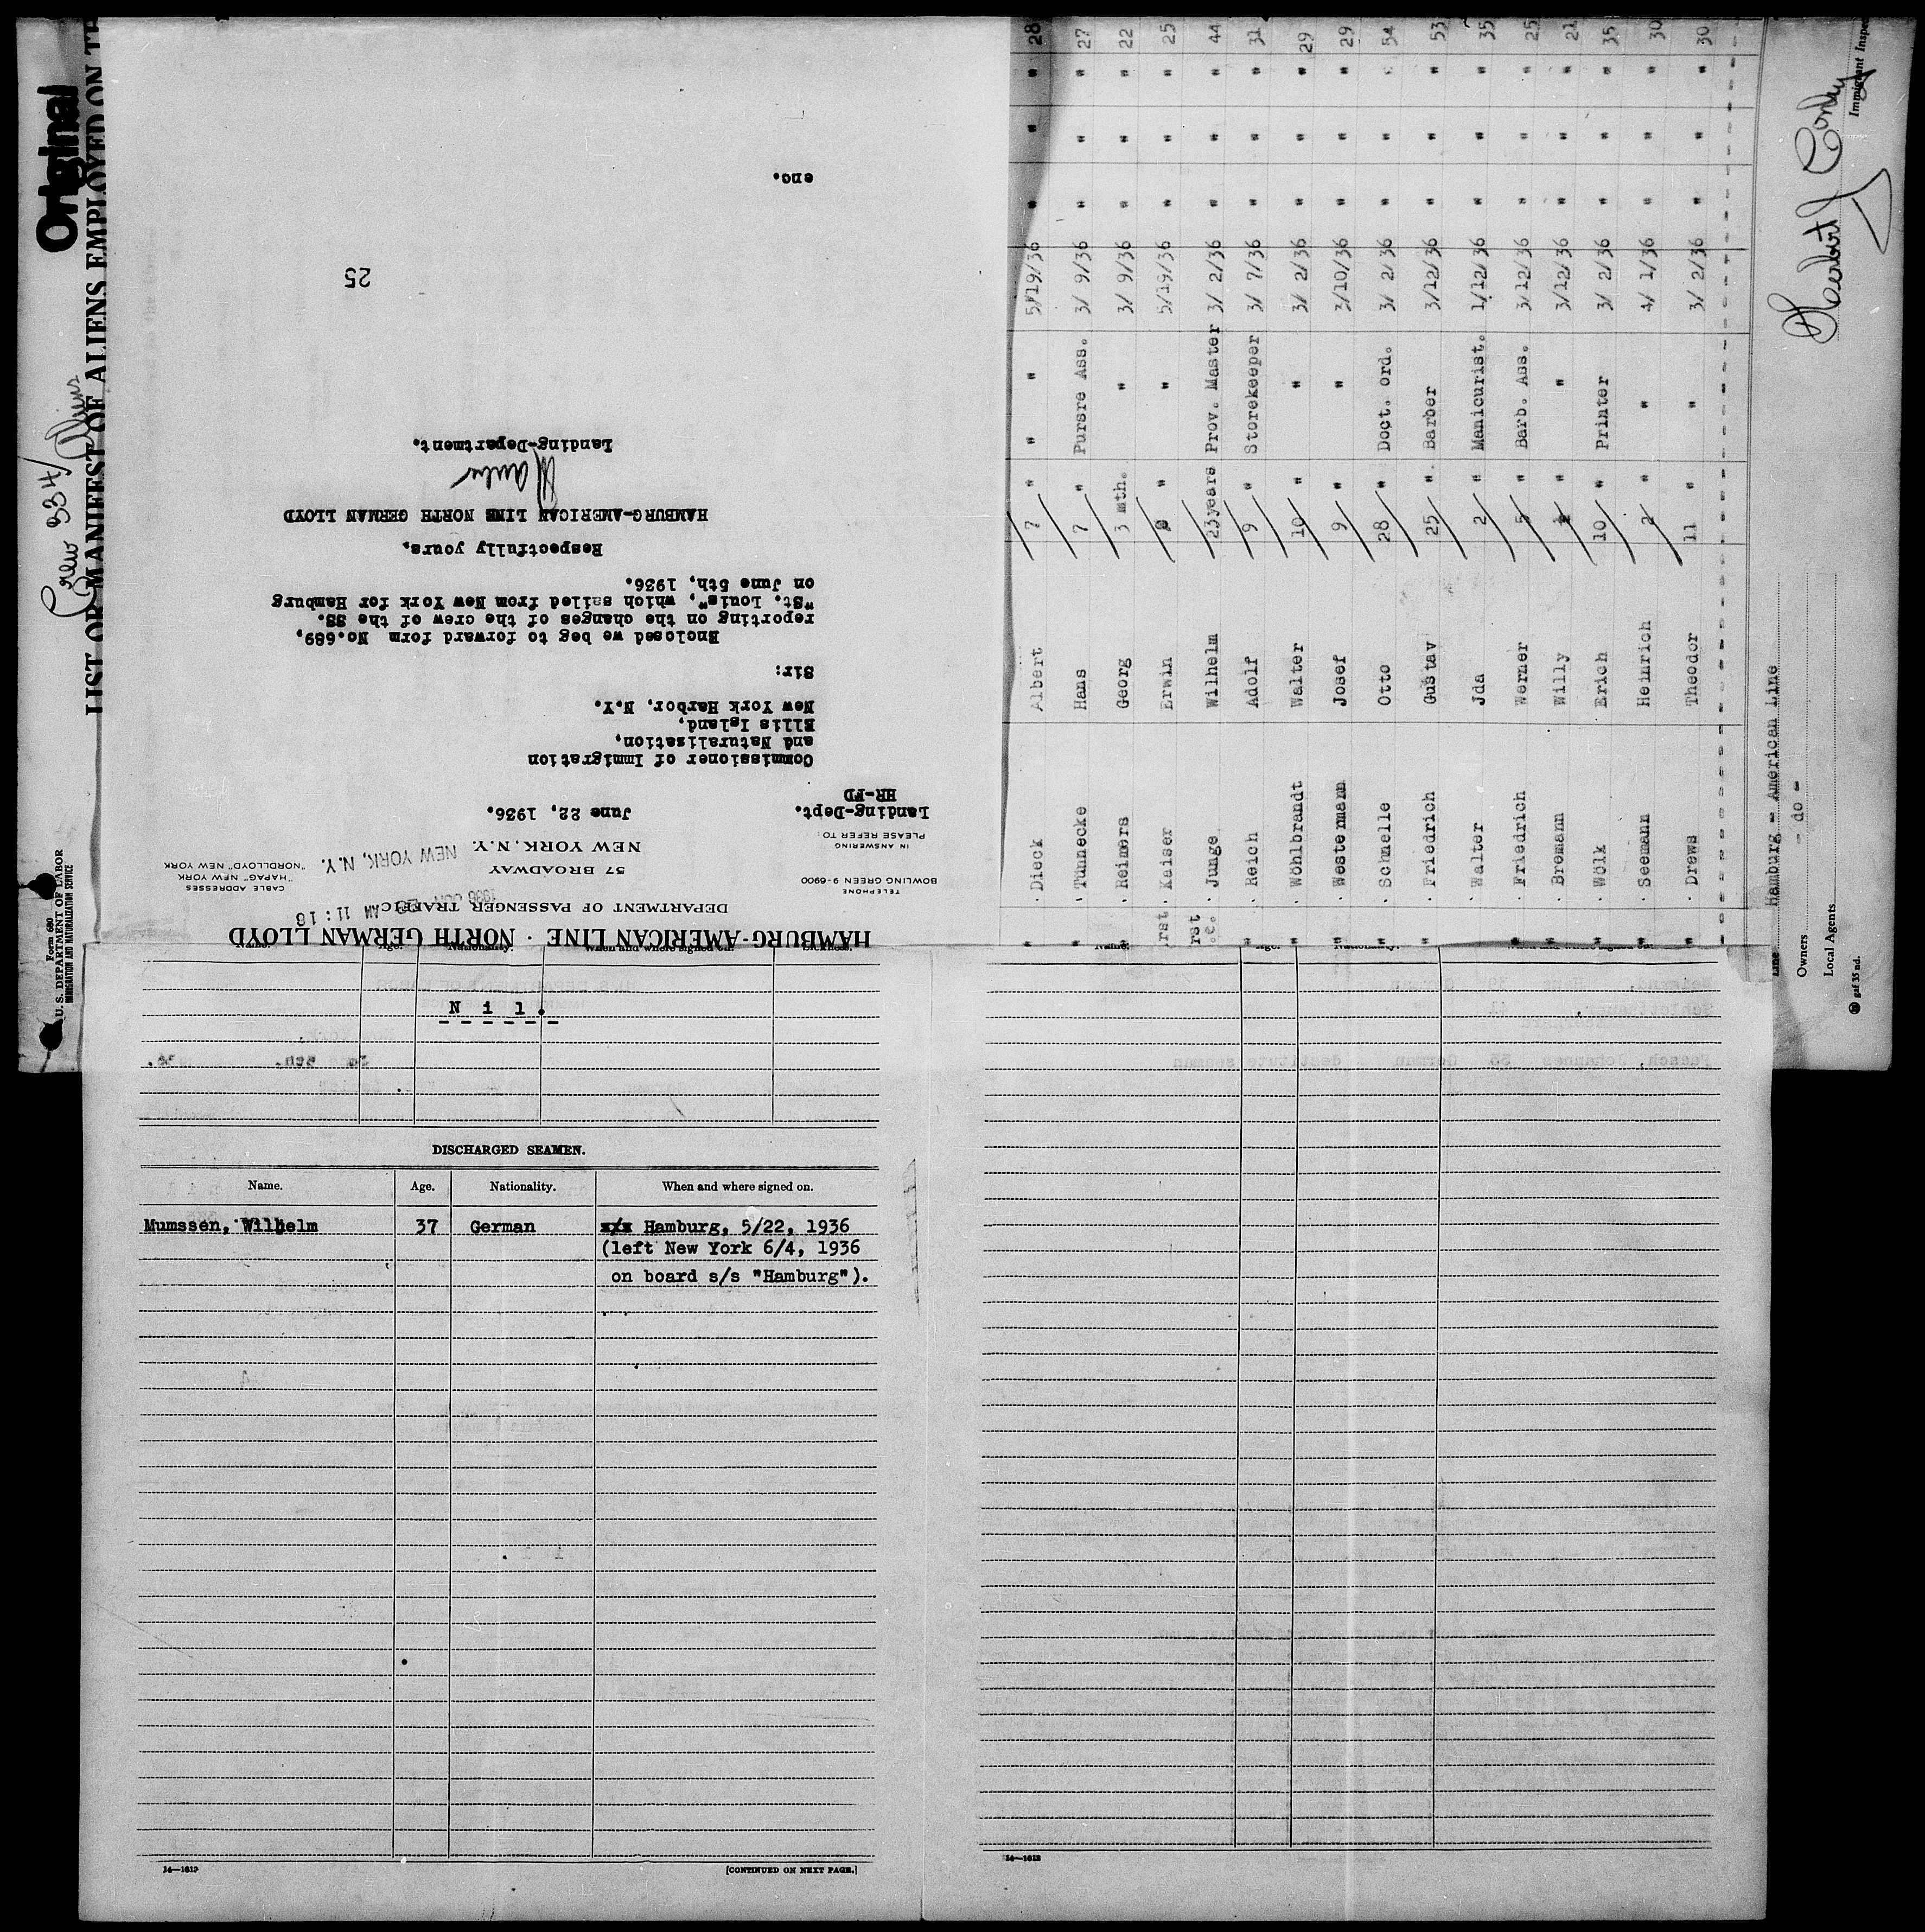 Original
Crew 334 / Aliens
Form 680
U. S. DEPARTMENT OF LABOR
IMMIGRATION AND NATURALIZATION SERVICE
LIST OR MANIFEST OF ALIENS EMPLOYED ON TH
HAMBURG-AMERICAN LINE · NORTH GERMAN LLOYD
DEPARTMENT OF PASSENGER TRAFFIC
TELEPHONE
BOWLING GREEN 9-6900
57 BROADWAY
NEW YORK, N.Y.
CABLE ADDRESSES
"HAPAG" NEW YORK
"NORDLLOYD" NEW YORK
AM 11:16
NEW YORK, N.Y.
IN ANSWERING
PLEASE REFER TO:
Landing-Dept.
HR-FD
June 22, 1936.
Commissioner of Immigration
and Naturalization,
Ellis Island,
New York Harbor, N.Y.
Sir:
Enclosed we beg to forward form No.689,
reporting on the changes of the crew of the SS.
"St. Louis", which sailed from New York for Hamburg
on June 5th, 1936.
Respectfully yours,
HAMBURG-AMERICAN LINE NORTH GERMAN LLOYD
Landing-Department.
25
enc.
" . Dieck Albert 7 " " " 5/19/36 " " " 28
" . Tünnecke Hans 7 " Pursre Ass. 3/ 9/36 " " " 27
. Reimers Georg 3 mth. " 3/ 9/36 " " " 22
rst . Kaiser Erwin " " 5/19/36 " " " 25
rst . Junge Wilhelm 23years Prov. Master 3/ 2/36 " " " 44
" . Reich Adolf 9 " Storekeeper 3/ 7/36 " " " 31
" . Wöhlbrandt Walter 10 " " 3/ 2/36 " " " 29
" . Westermann Josef 9 " " 3/10/36 " " " 29
" . Schnelle Otto 28 " Doct. ord. 3/ 2/36 " " " 54
" . Friedrich Gustav 25 " Barber 3/12/36 " " " 53
. Walter Jda 2 " Manicurist. 1/12/36 " " " 35
" . Friedrich Werner 5 " Barb. Ass. 3/12/36 " " " 25
" . Bremann Willy " " 3/12/36 " " " 21
" . Wölk Erich 10 " Printer 3/ 2/36 " " " 35
" . Seemann Heinrich 2 " " 4/ 1/36 " " " 30
" . Drews Theodor 11 " " 3/ 2/36 " " " 30
Line Hamburg - American Line
Owners - do -
Local Agents
gaf 35 nd.
Immigrant Inspe
Name. Age. Nationality. When and where signed on. Sickness.
N i l.
DISCHARGED SEAMEN.
Name. Age. Nationality. When and where signed on.
Mumssen, Wilhelm 37 German x/x Hamburg, 5/22, 1936
(left New York 6/4, 1936
on board s/s "Hamburg").
14—1613
[CONTINUED ON NEXT PAGE.]
14—1613